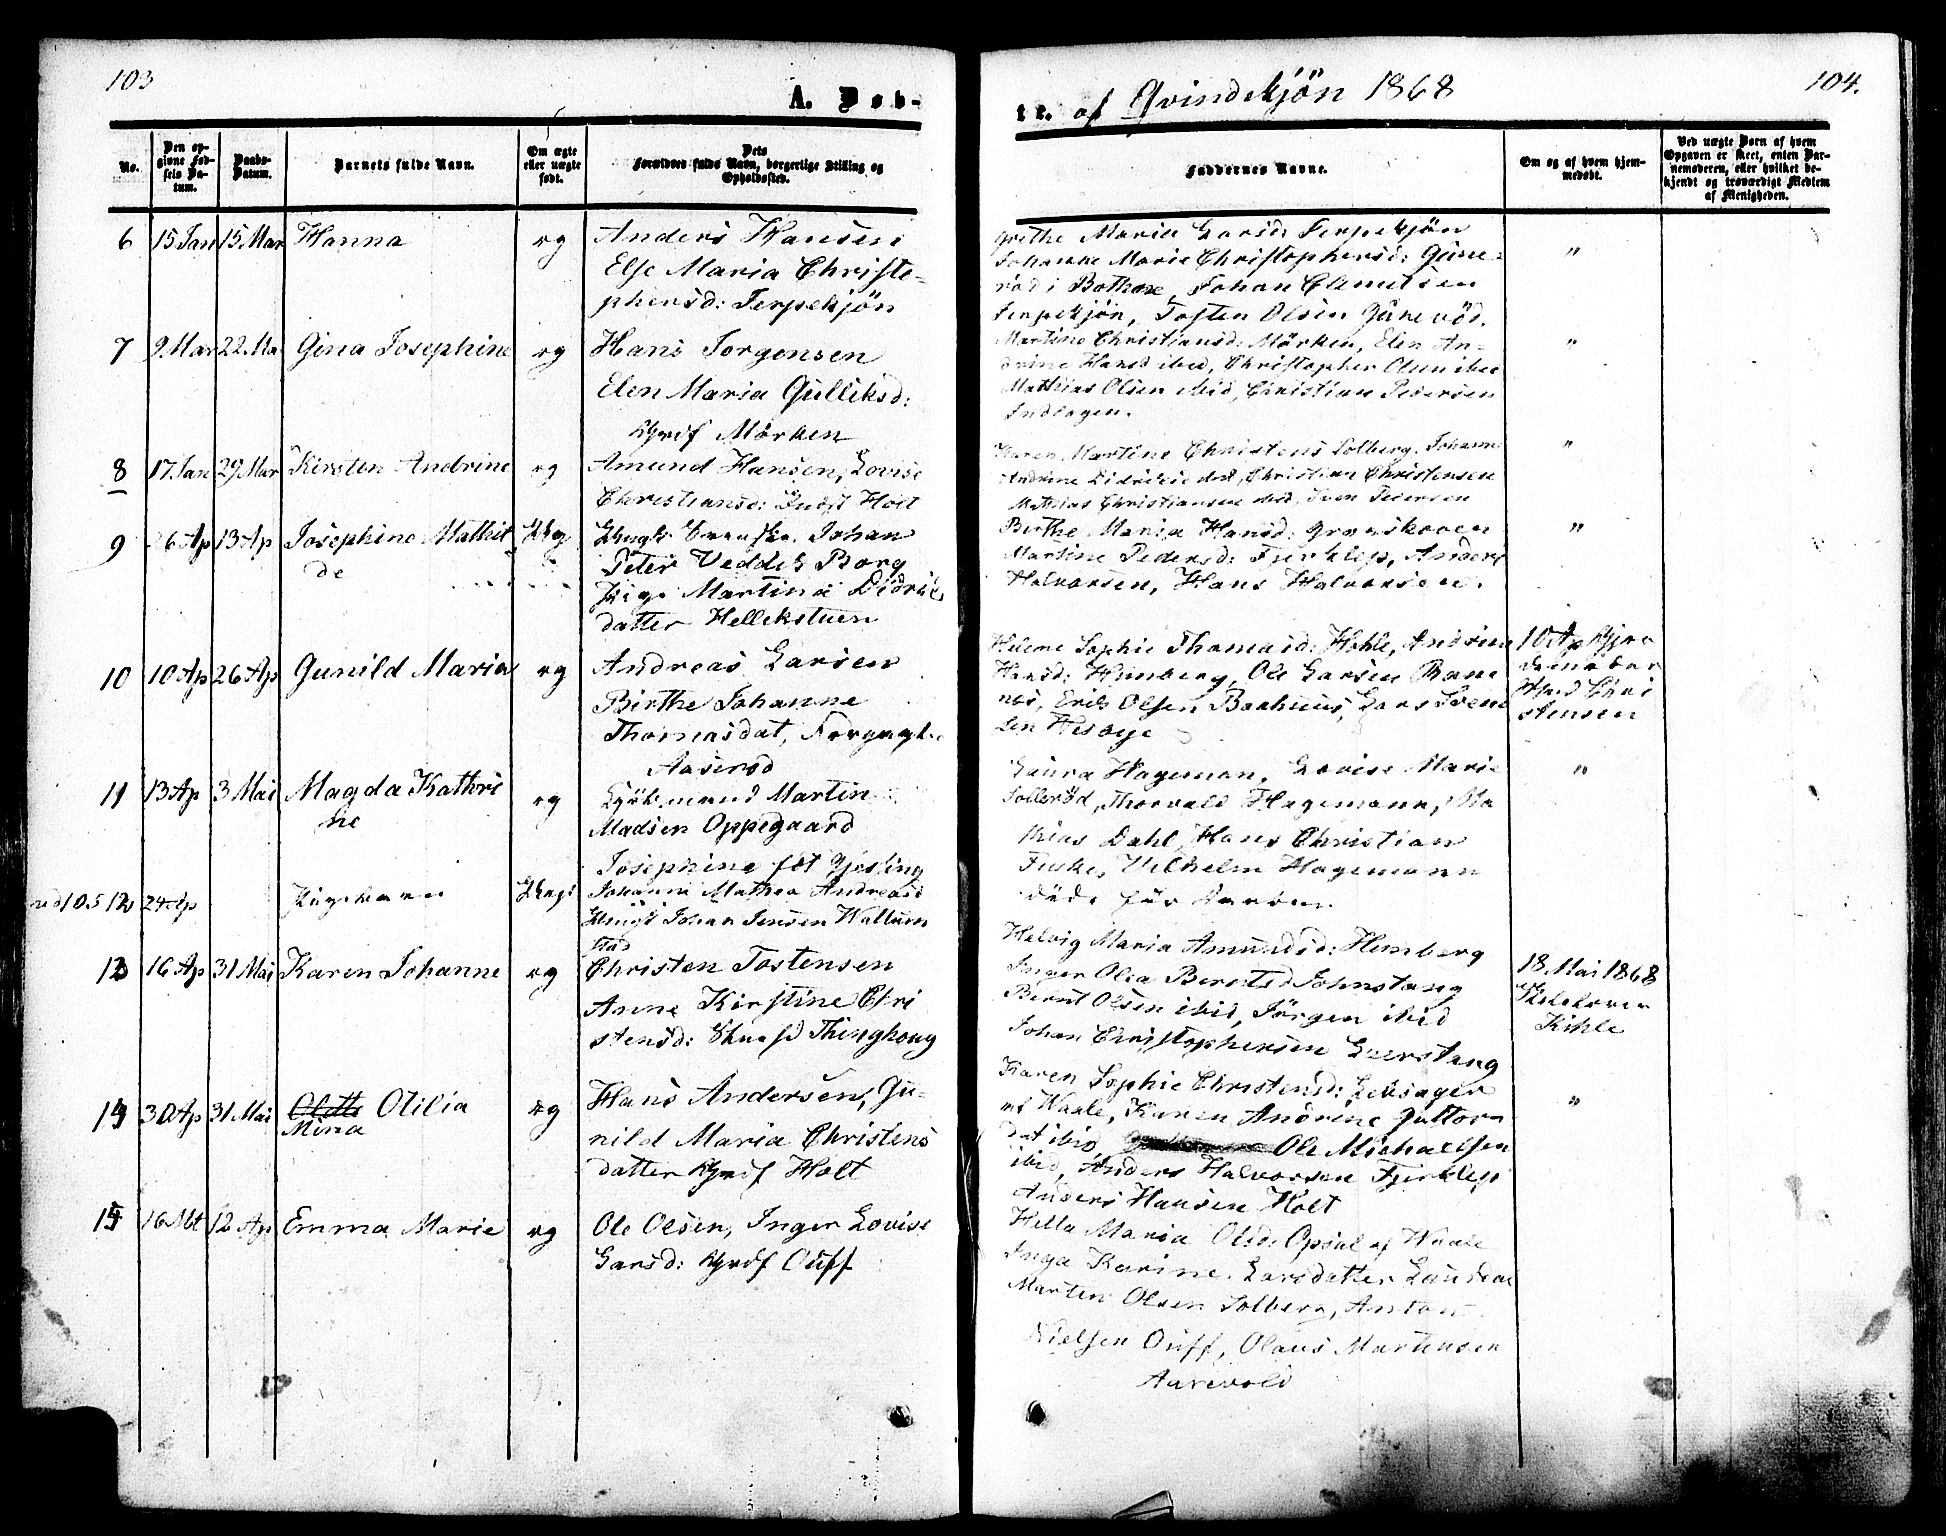 103
A. Døb-
No.
Den op-
givne Fød-
sels Da-
tum.
Daabs-
Datum.
Barnets fulde Navn.
Om ægte
eller uægte
født.
Dets
Forældres fulde Navn, borgerlige Stilling og
Opholdssted.
6 15 Jan 15 Mar Hanna æg Anders Hansen
Else Maria Christo-
phersd: Terpekjön
7 9 Mar 22 Ma Gina Josephine æg Hans Jorgensen
Elen Maria Gulliksd:
Mörken
8 17 Jan 29 Mar Kirsten Andrine æg Amund Hansen, Lovise
Christiansd: Holt
9 26 Ap 13 Ap Josephine Mathil- Johan
de Peter Borg
Pige Martina
datter Hellekstuen
10 10 Ap 26 Ap Gunild Maria æg Andreas Larsen
Birthe Johanne
Thomasdat,
Aaserød
11 13 Ap 3 Mai Magda Kathri æg Martin
ne Madsen Oppegaard
Josephine föt Gjesling
12 24 Ap Johanne Mathea Andreasd
Johan Jensen Wallum
stad
13 16 Ap 31 Mai Karen Johanne æg Christen Tostensen
Anne Kirstine Chri
stensd: Thinghoug
14 30 Ap 31 Mai Olette Otilia æg Hans Andersen, Gu-
Mina
nild Maria Christens
datter Holt
15 16 Mt 12 Ap Emma Marie æg Ole Olsen, Inger Lovise
Larsd: Ouff
104.
te. af Qvindekjön 1868
Faddernes Navne.
Om og af hvem hjem-
medøbt.
Ved uægte Børn af hvem
Opgaven er skeet, enten Bar-
nemoderen, eller hvilket be-
kjendt og troværdigt Medlem
af Menigheden.
Grethe Maria Larsd: Terpekjön "
Johanne Marie Christophersd: Gune-
röd i Bothne, Johan Clemetsen
Terpekjön, Tosten Olsen Guneröd.
Martine Christiansd: Mörken, Elen An- "
drine Hansd ibid, Christopher Olsen ibid
Mathias Olsen ibid, Christian Pedersen
Indlagen.
Karen Martine Christens Solberg, Johanne "
Andrine Christian Christensen
Mathias Christiansen ibid, Sven Pedersen
Birthe Maria Hansd: Granskoven "
Martine Pedersd: Fjerklep, Anders
Halvorsen, Hans Halvorsen.
Helene Sophie Thomasd: Hohle, Andrine 10 Ap
Hansd: Himberg, Ole Larsen
Erik Olsen Baahuus, Lars Sven
sen stensen
Laura Hagemann, Lovise Marie "
Sollerød, Thorvald Hagemann, Ma
thias Dahl, Hans Christian
Vilhelm Hagemann
döde för Daaben
Helvig Maria Amundsd: Himberg
Inger Olea Berntsd Johnstang 18 Mai 1868
Bernt Olsen ibid, Jörgen ibid
Johan Christophersen Kihle
Karen Sophie Christensd: Leksager
af Waale, Karen Andrine Guttorm "
dat ibid Ole Michaelsen
ibid, Anders Halvorsen Fjerklep
Anders Hansen Holt
Hella Maria Olsd: Opsal af Waale
Inga Karine Larsdatter
Marten Olsen Solberg, Anton
Nielsen Ouff, Olaus Martensen
Aarevold